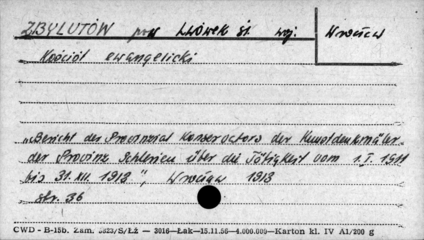 ZBYLUTÓW pow Lwówek śl. woj. Wrocław
Kościół ewangelicki
„Bericht des Provinzial Konservators der Kunstdenkmäler
der Provinz Schlesien über die Tätigkeit vom 1.I.1911
bis 31.XII.1913", Wrocław 1913
str. 36
CWD - B-15b. Zam. 5823/S/Łż — 3016—Łak—15.11.56—4.000.000—Karton kl. IV A1/200 g